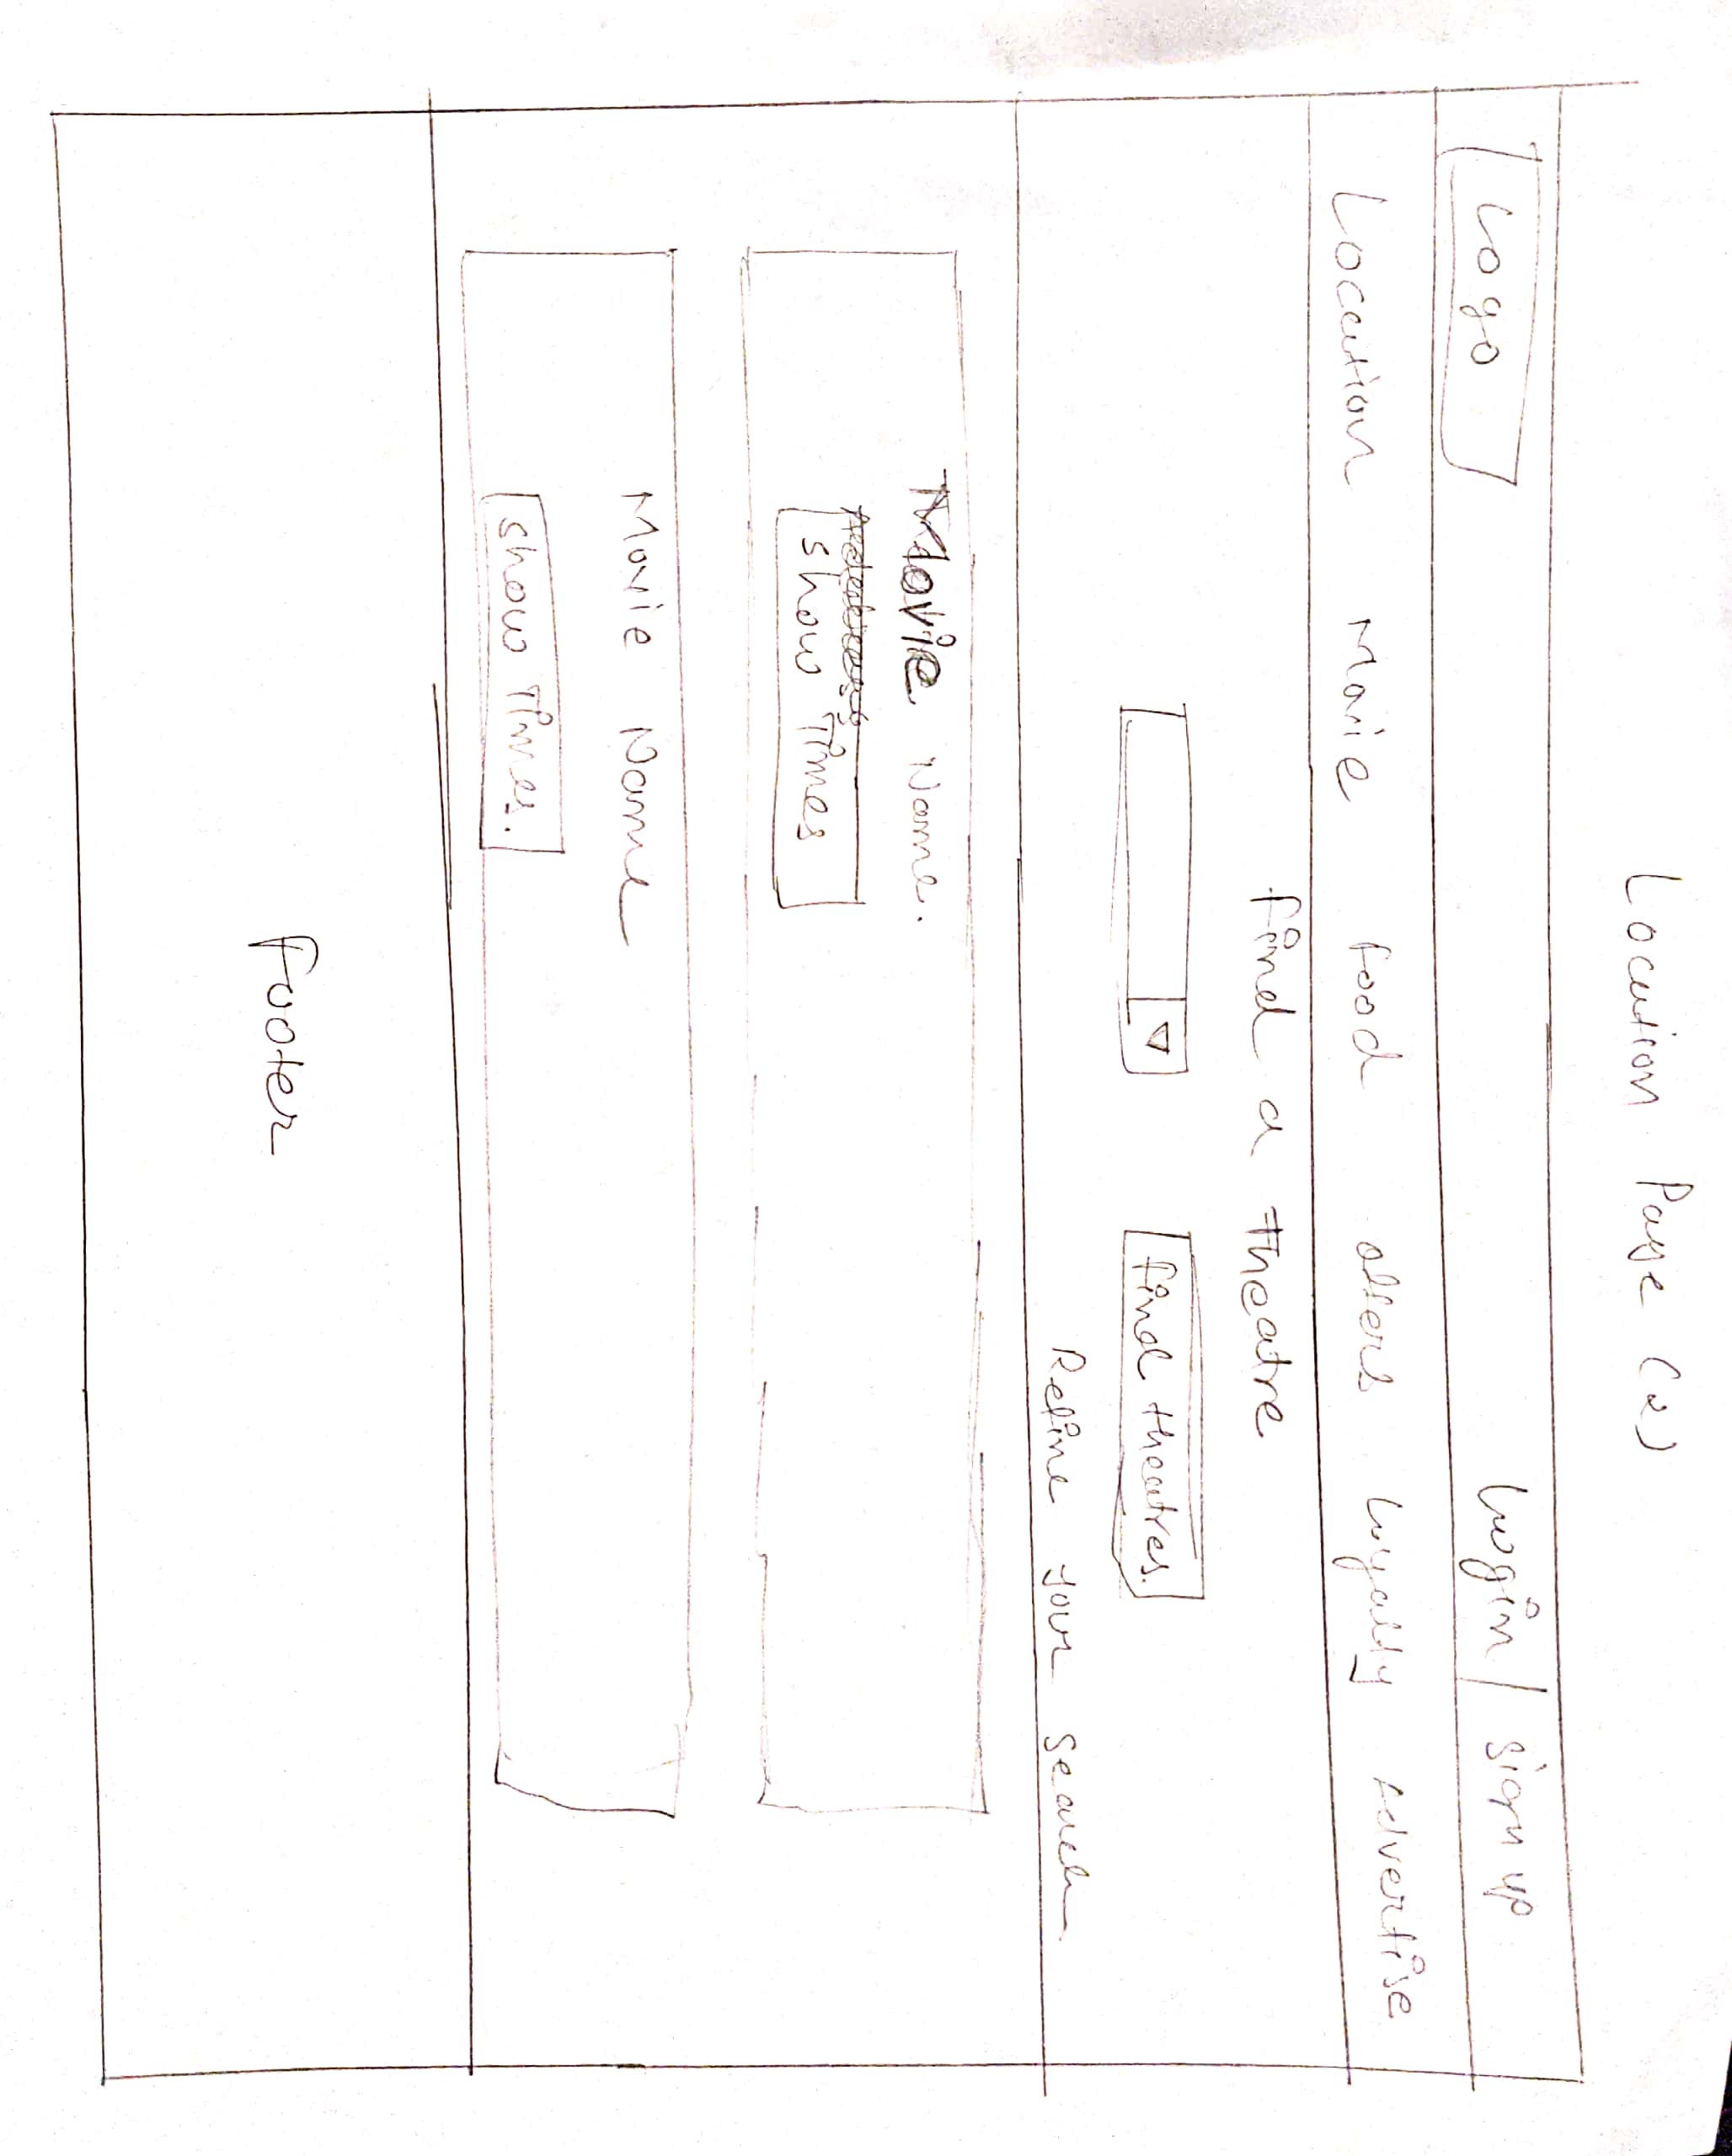 Location Page (2)
Logo Login | Sign up
Location Movie food offers Loyalty Advertise
find a theatre
find theatres.
Refine your search
Movie Name.
Show Times
Movie Name
Show Times.
Footer